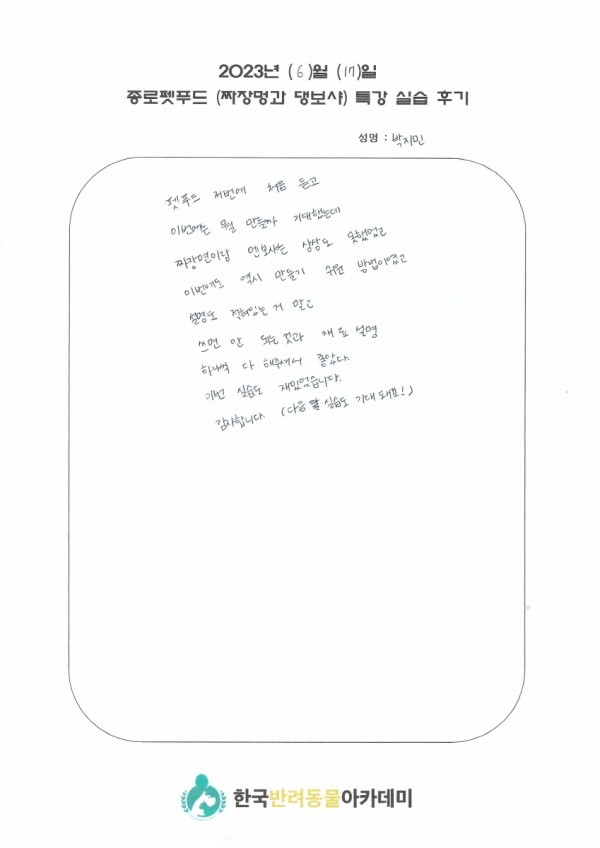 2023년 (6)월 (17)일
종로펫푸드 (짜장멍과 댕보샤) 특강 실습 후기
성명 : 박지민
펫푸드 저번에 처음 듣고
이번에는 뭘 만들까 기대했는데
짜장면이랑 멘보샤는 상상도 못했었고
이번에도 역시 만들기 쉬운 방법이였고
설명도 적혀있는 거 말고
쓰면 안 되는 것과 재료 설명
하나씩 다 해주셔서 좋았다.
이번 실습도 재밌었습니다.
감사합니다. (다음 달 실습도 기대돼요!)
한국반려동물아카데미